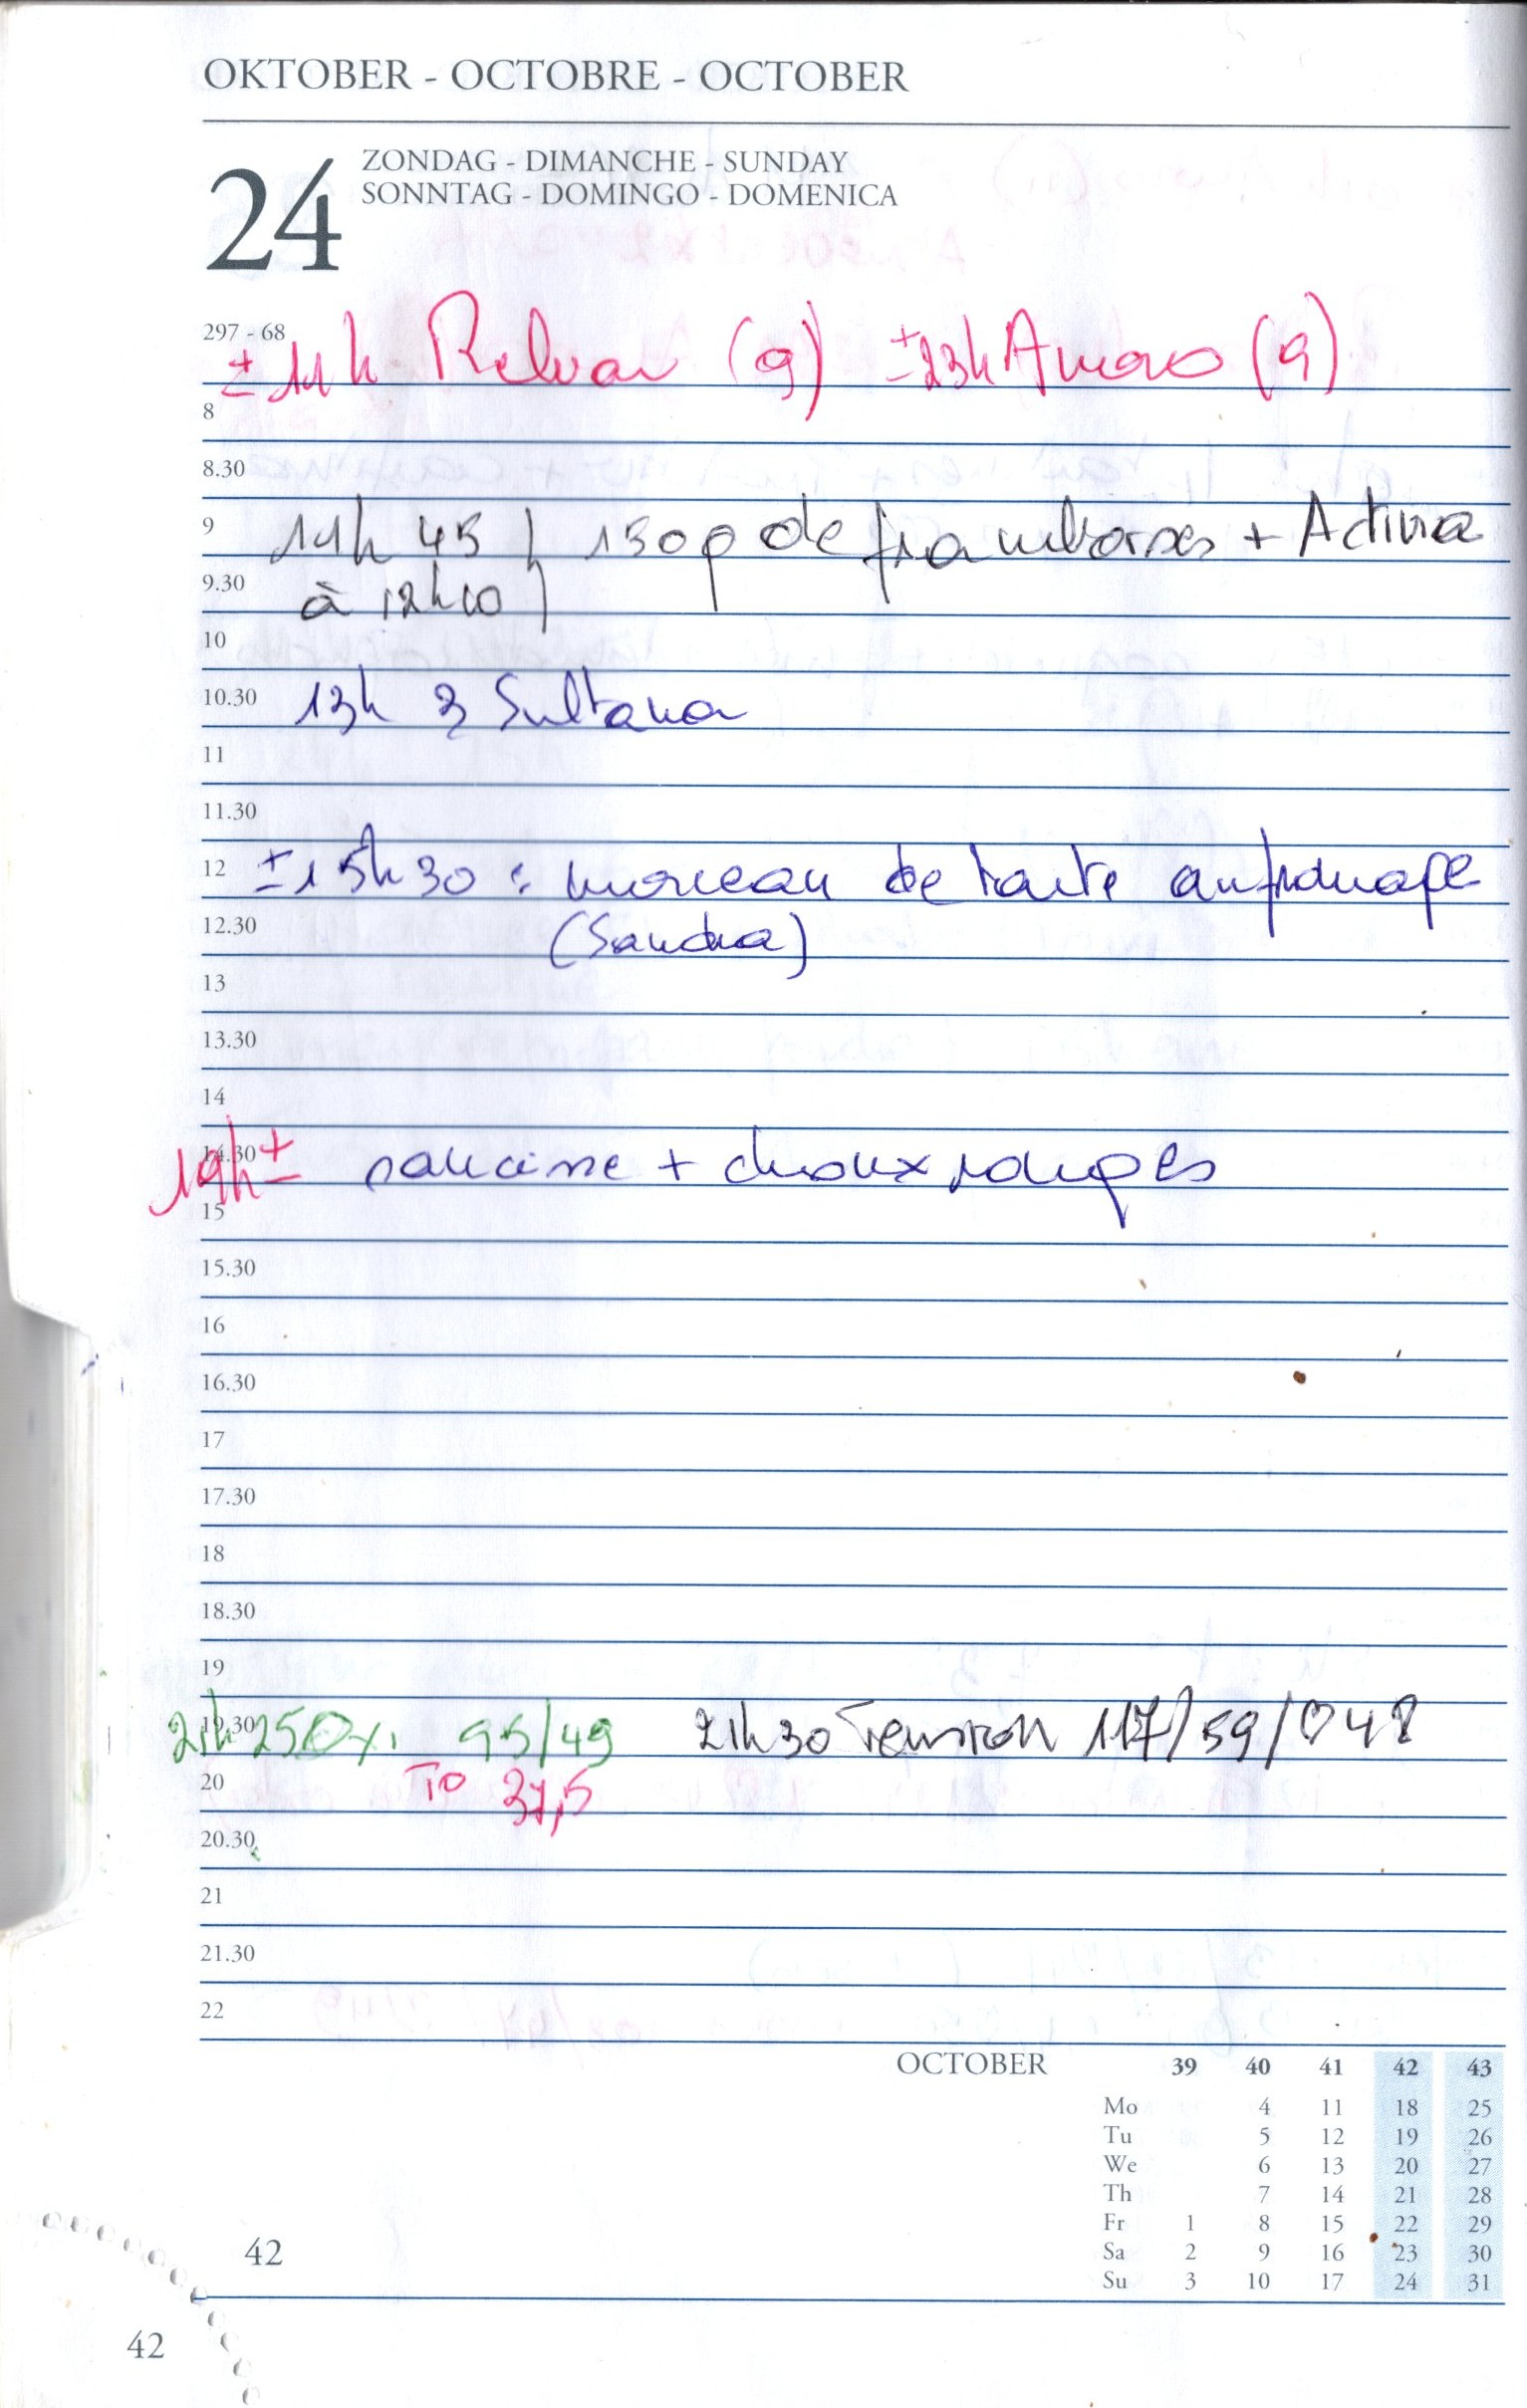 OKTOBER - OCTOBRE - OCTOBER
24
ZONDAG - DIMANCHE - SUNDAY
SONNTAG - DOMINGO - DOMENICA
297 - 68
± 11h Relvar (9) ±23h Amoro (9)
8
8.30
9 11h 45 150g de framboises + Activia
9.30 à 12h10
10
10.30 13h 3 Sultana
11
11.30
12 ±15h30 : morceau de tarte au fromage
12.30 (Sandra)
13
13.30
14
14.30 19h± saucisse + choux rouges
15
15.30
16
16.30
17
17.30
18
18.30
19
19.30 21h25 Oxi 95/49 21h30 Tension 117/59/048
20 T° 37,5
20.30
21
21.30
22
OCTOBER 39 40 41 42 43
Mo 4 11 18 25
Tu 5 12 19 26
We 6 13 20 27
Th 7 14 21 28
Fr 1 8 15 22 29
Sa 2 9 16 23 30
Su 3 10 17 24 31
42
42